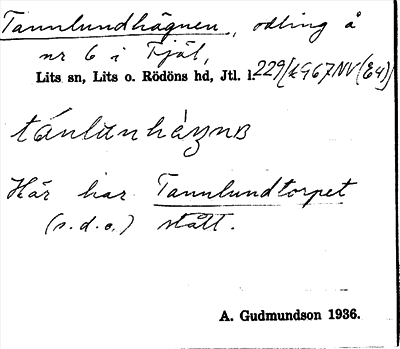 Tannlundhägnen, odling å
nr 6 i Fjäl,
Lits sn, Lits o. Rödöns hd, Jtl. l.
Här har Tannlundtorpet
(s.d.o.) stått.
A. Gudmundson 1936.